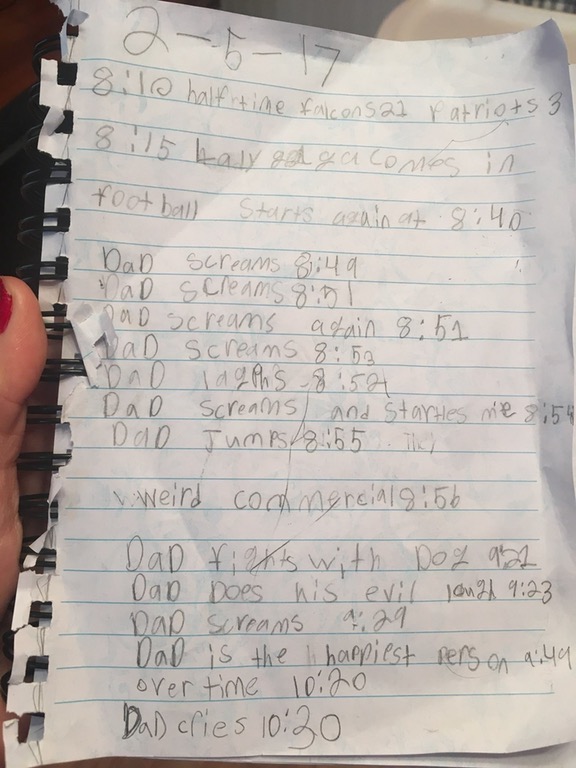 2-5-17
8:10 halftime falcons 21 Patriots 3
8:15 Laly gaga comes in
football starts again at 8:40
DaD screams 8:49
DaD screams 8:51
DaD screams again 8:51
DaD screams 8:53
DaD laghs 8:54
DaD screams and startles me 8:54
DaD Jumps 8:55
weird commercial 8:56
DaD fights with Dog 9:21
DaD Does his evil laugh 9:23
DaD screams 9:29
DaD is the happiest person 9:49
over time 10:20
DaD cries 10:30